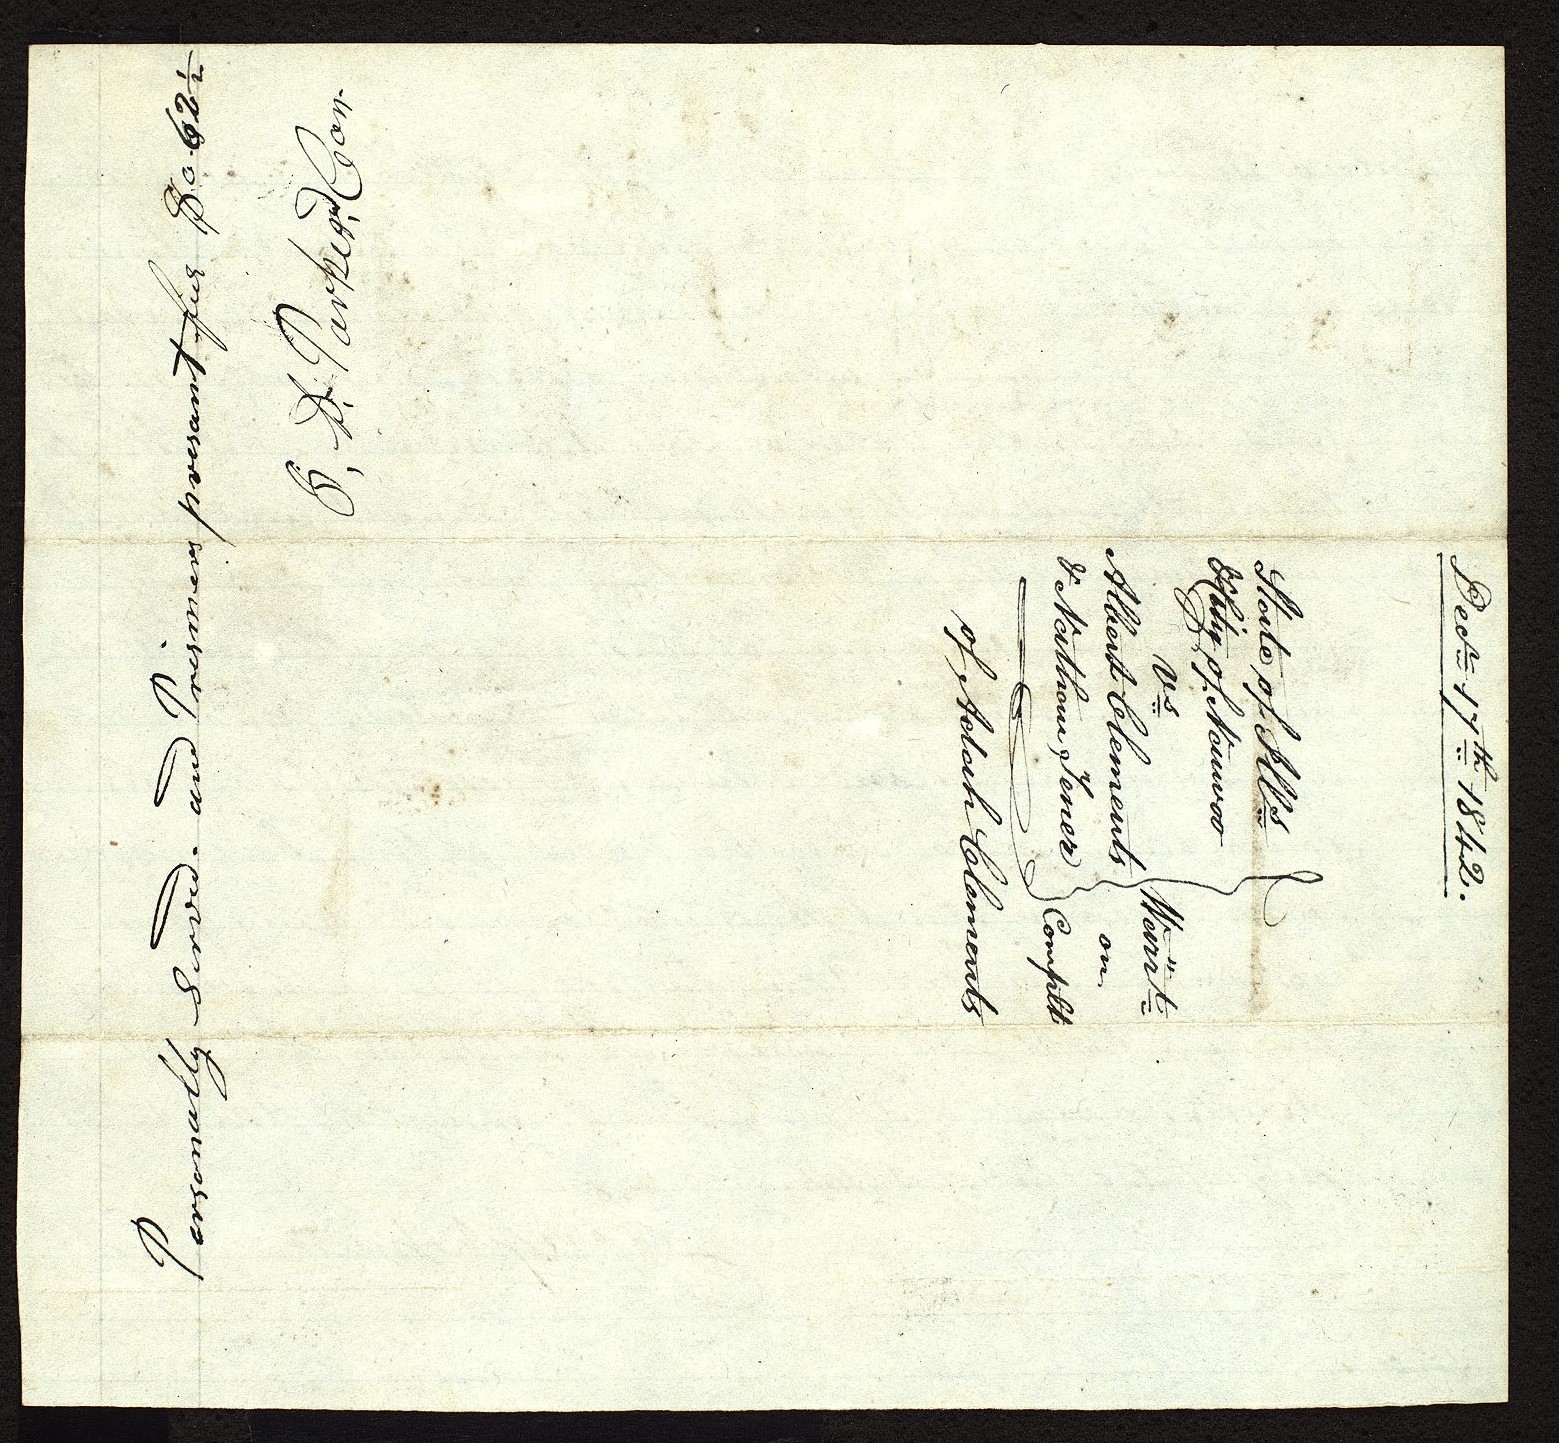 Decr 17th 1842.
State of Ills
& City of Nauvoo
vs
Albert Clements
& Nathan Tener
Warrt
on
Complt
of Adah Clements
Personally Served. and Prisoners present fees $0.62½
P. D. Parker, Con